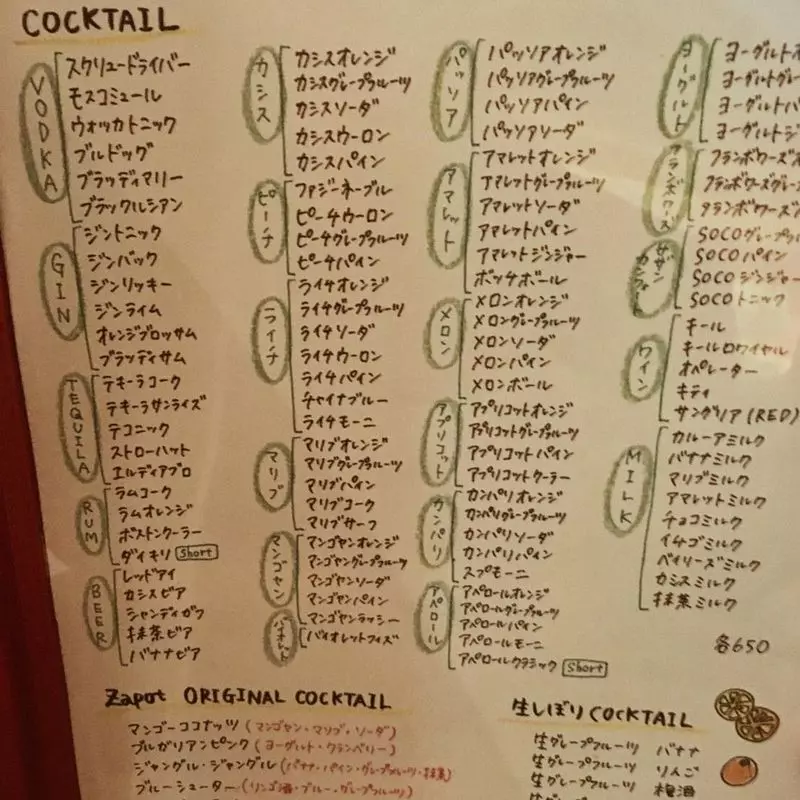 COCKTAIL
VODKA
スクリュードライバー
モスコミュール
ウォッカトニック
ブルドッグ
ブラッディマリー
ブラックルシアン
GIN
ジントニック
ジンバック
ジンリッキー
ジンライム
オレンジブロッサム
ブラッディサム
TEQUILA
テキーラコーク
テキーラサンライズ
テコニック
ストローハット
エルディアブロ
RUM
ラムコーク
ラムオレンジ
ボストンクーラー
ダイキリ Short
BEER
レッドアイ
カシスビア
シャンディガフ
抹茶ビア
バナナビア
カシス
カシスオレンジ
カシスグレープフルーツ
カシスソーダ
カシスウーロン
カシスパイン
ピーチ
ファジーネーブル
ピーチウーロン
ピーチグレープフルーツ
ピーチパイン
ライチ
ライチオレンジ
ライチグレープフルーツ
ライチソーダ
ライチウーロン
ライチパイン
チャイナブルー
ライチモーニ
マリブ
マリブオレンジ
マリブグレープフルーツ
マリブパイン
マリブコーク
マリブサーフ
マンゴヤン
マンゴヤンオレンジ
マンゴヤングレープフルーツ
マンゴヤンソーダ
マンゴヤンパイン
マンゴヤンラッシー
バイオレット
バイオレットフィズ
パッソア
パッソアオレンジ
パッソアグレープフルーツ
パッソアパイン
パッソアソーダ
アマレット
アマレットオレンジ
アマレットグレープフルーツ
アマレットソーダ
アマレットパイン
アマレットジンジャー
ボッチボール
メロン
メロンオレンジ
メロングレープフルーツ
メロンソーダ
メロンパイン
メロンボール
アプリコット
アプリコットオレンジ
アプリコットグレープフルーツ
アプリコットパイン
アプリコットクーラー
カンパリ
カンパリオレンジ
カンパリグレープフルーツ
カンパリソーダ
カンパリパイン
スプモーニ
アペロール
アペロールオレンジ
アペロールグレープフルーツ
アペロールパイン
アペロールモーニ
アペロールクラシック Short
ヨーグルト
ヨーグルトオ
ヨーグルトグレ
ヨーグルトパ
ヨーグルトジ
フランボワーズ
フランボワーズオ
フランボワーズグレー
フランボワーズ
サザンカンフォート
SOCOグレープフル
SOCOパイン
SOCOジンジャー
SOCOトニック
ワイン
キール
キールロワイヤル
オペレーター
キティ
サングリア(RED)
MILK
カルーアミルク
バナナミルク
マリブミルク
アマレットミルク
チョコミルク
イチゴミルク
ベイリーズミルク
カシスミルク
抹茶ミルク
各650
Zapot ORIGINAL COCKTAIL
マンゴーココナッツ(マンゴヤン・マリブ・ソーダ)
ブルガリアンピンク(ヨーグルト・クランベリー)
ジャングル・ジャングル(バナナ・パイン・グレープフルーツ・抹茶)
ブルーシューター(リンゴ酒・ブルー・グレープフルーツ)
生しぼりCOCKTAIL
生グレープフルーツ バナナ
生グレープフルーツ りんご
生グレープフルーツ 梅酒